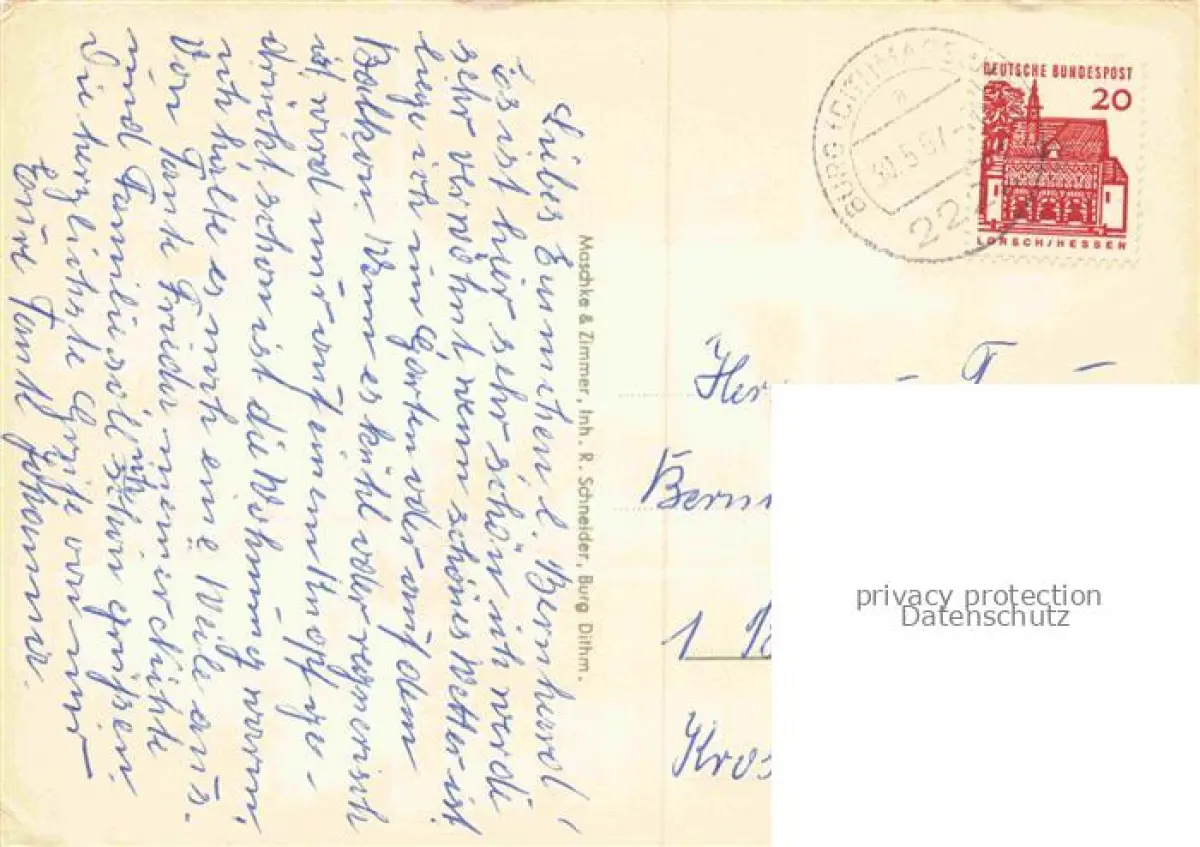 Liebes Evmchen l. Bernhard!
Es ist hier sehr schön ich werde
sehr verwöhnt wenn schönes Wetter ist
liege ich im Garten oder auf dem
Balkon. Wenn es kühl oder regnerisch
ist wird nur auf einen Knopf ge-
drückt schon ist die Wohnung warm,
ich halte es noch eine Weile aus.
Von Tante Frieda meine Nichte
und Familie soll ich schön grüßen.
Die herzlichste Grüße von mir
Eure Tante Johanna.
Maschke & Zimmer, Inh. R. Schneider, Burg Dithm.
BURG (DITHMARSCHEN)
a
30.5.67
222
DEUTSCHE BUNDESPOST
20
LORSCH/HESSEN
Her
Bern
1
Kros
privacy protection
Datenschutz